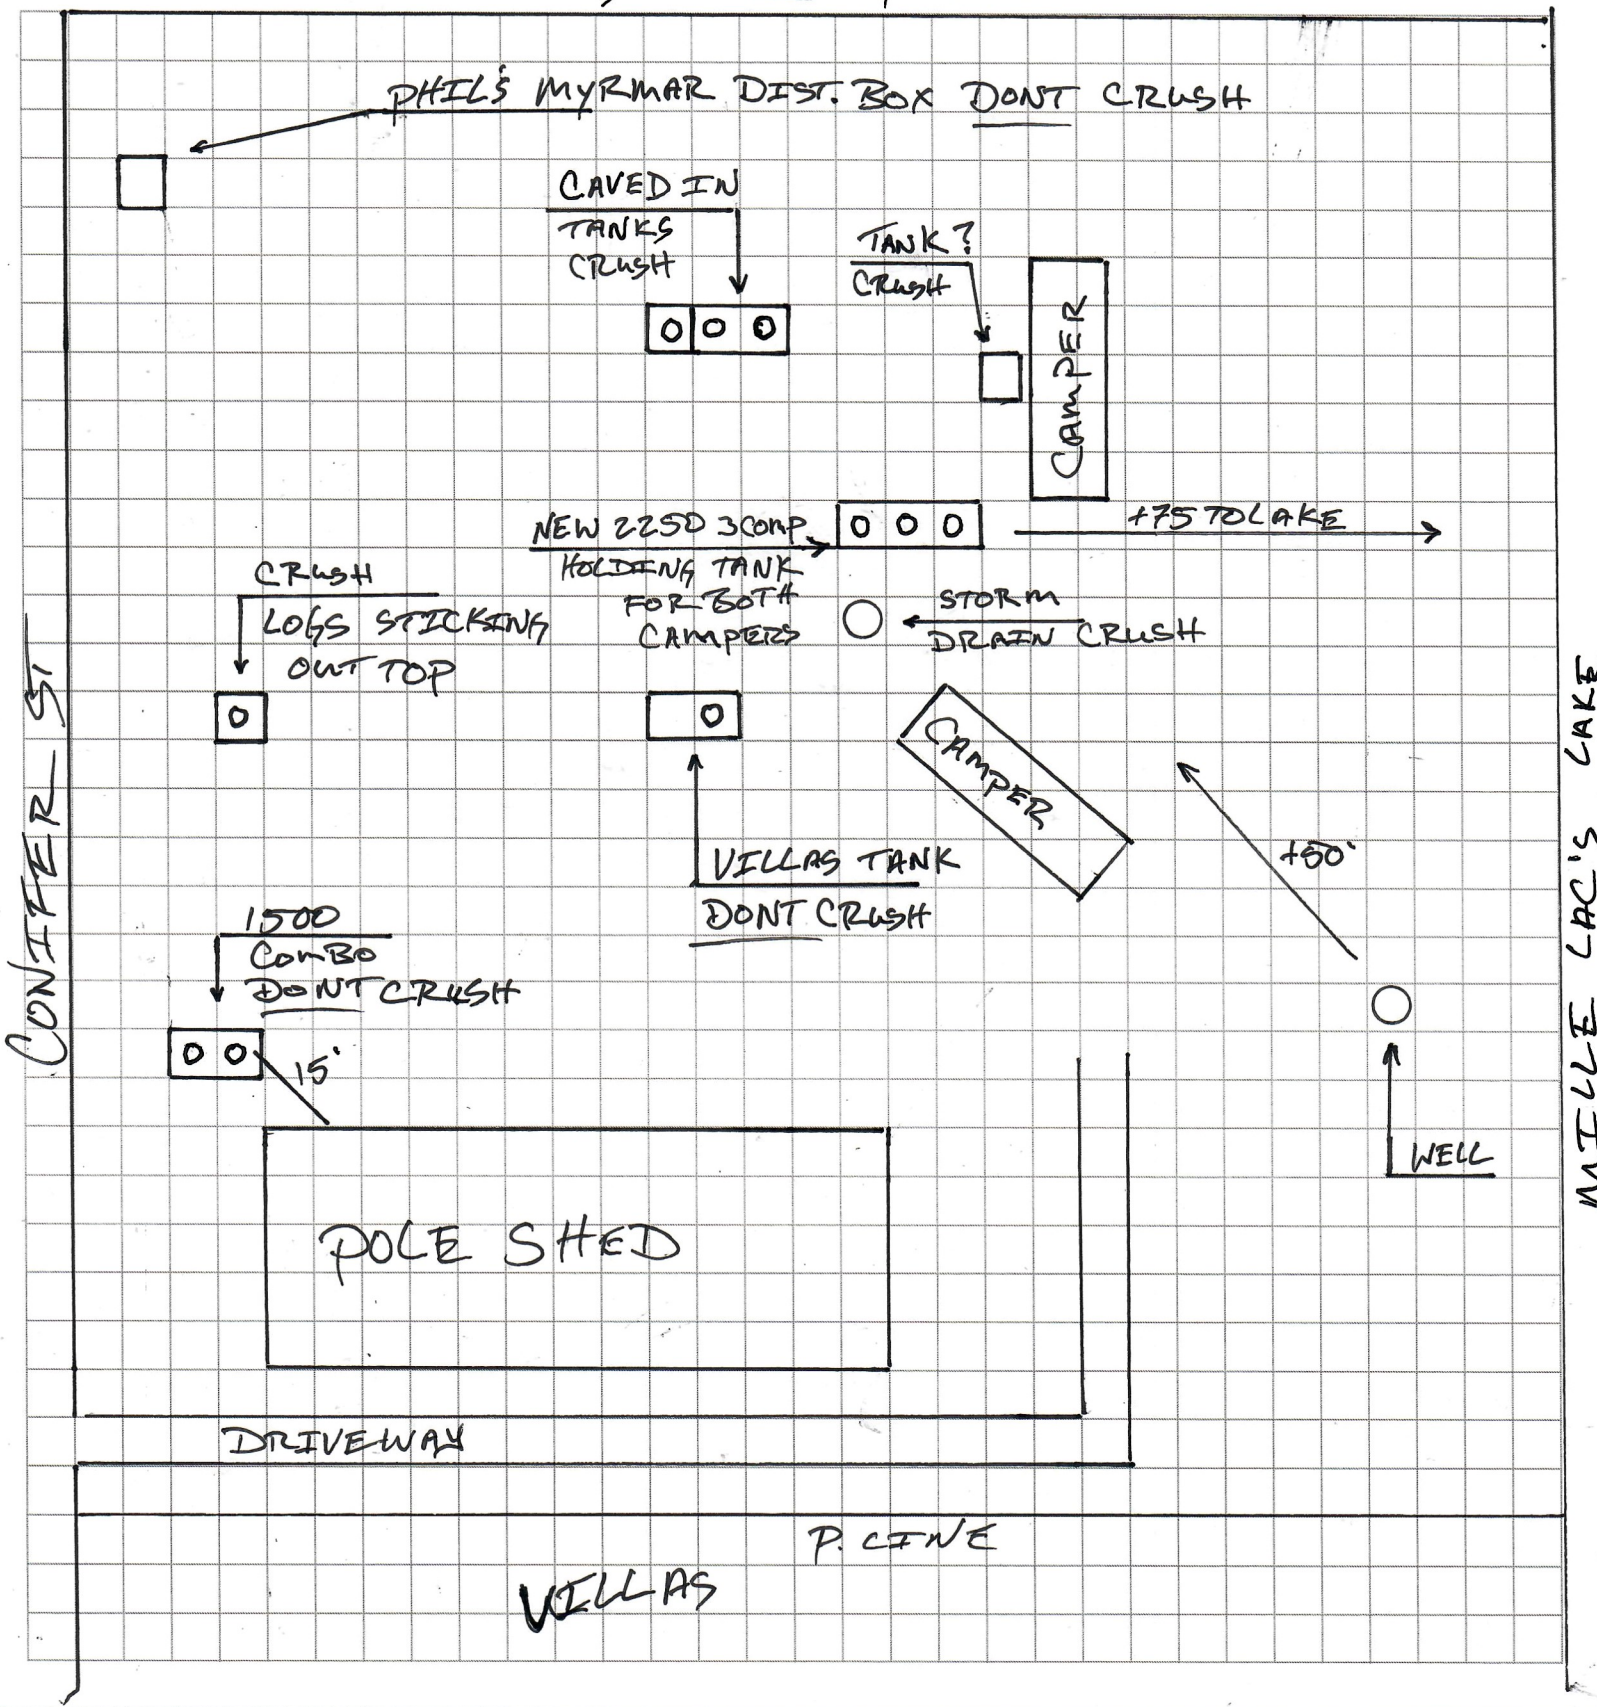 PHIL'S MYRMAR DIST. BOX DONT CRUSH
CAVED IN
TANKS
CRUSH
TANK?
CRUSH
CAMPER
NEW 2250 3 COMP
HOLDING TANK
FOR BOTH
CAMPERS
+75 TO LAKE
CRUSH
LOGS STICKING
OUT TOP
STORM
DRAIN CRUSH
CAMPER
CONIFER ST
MILLE LAC'S LAKE
+50'
VILLAS TANK
DONT CRUSH
1500
COMBO
DONT CRUSH
15'
WELL
POLE SHED
DRIVEWAY
P. LINE
VILLAS